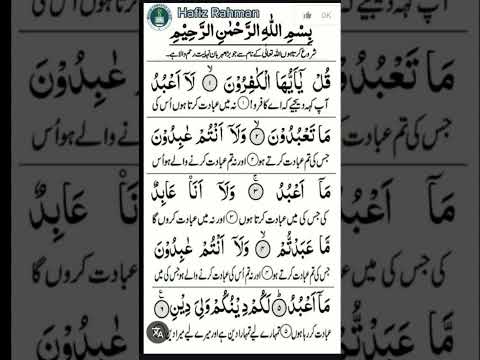 Hafiz Rahman
0K
بِسْمِ اللّٰهِ الرَّحْمٰنِ الرَّحِيْمِ
شروع کرتا ہوں اللہ تعالیٰ کے نام سے جو بڑا مہربان نہایت رحم والا ہے۔
قُلْ يٰۤاَيُّهَا الْكٰفِرُوْنَ ۙ۝۱ لَاۤ اَعْبُدُ
آپ کہہ دیجیے کہ اے کافرو! ۝۱ نہ میں عبادت کرتا ہوں اُس کی
مَا تَعْبُدُوْنَ ۙ۝۲ وَلَاۤ اَنْتُمْ عٰبِدُوْنَ
جس کی تم عبادت کرتے ہو ۝۲ اور نہ تم عبادت کرنے والے ہو اُس
مَاۤ اَعْبُدُ ۚ۝۳ وَلَاۤ اَنَا۠ عَابِدٌ
کی جس کی میں عبادت کرتا ہوں ۝۳ اور نہ میں عبادت کروں گا
مَّا عَبَدْتُّمْ ۙ۝۴ وَلَاۤ اَنْتُمْ عٰبِدُوْنَ
جس کی تم عبادت کرتے ہو ۝۴ اور نہ تم اُس کی عبادت کرنے والے ہو جس کی میں
مَاۤ اَعْبُدُ ؕ۝۵ لَكُمْ دِيْنُكُمْ وَلِيَ دِيْنِ ۠۝۶
عبادت کر رہا ہوں ۝۵ تمہارے لیے تمہارا دین ہے اور میرے لیے میرا دین